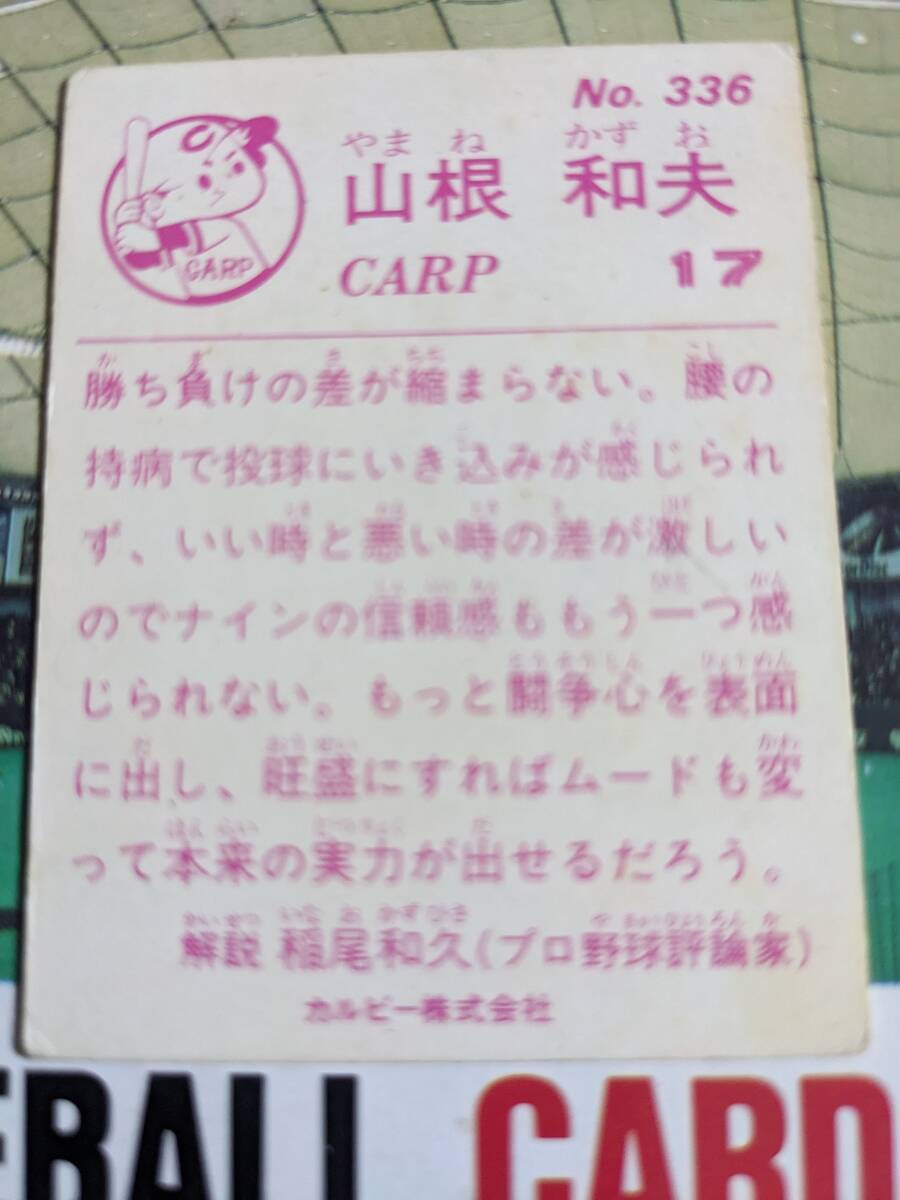 No. 336
やまね かずお
山根 和夫
CARP
CARP 17
勝ち負けの差が縮まらない。腰の
持病で投球にいき込みが感じられ
ず、いい時と悪い時の差が激しい
のでナインの信頼感ももう一つ感
じられない。もっと闘争心を表面
に出し、旺盛にすればムードも変
って本来の実力が出せるだろう。
解説 稲尾和久(プロ野球評論家)
カルビー株式会社
BALL CARD